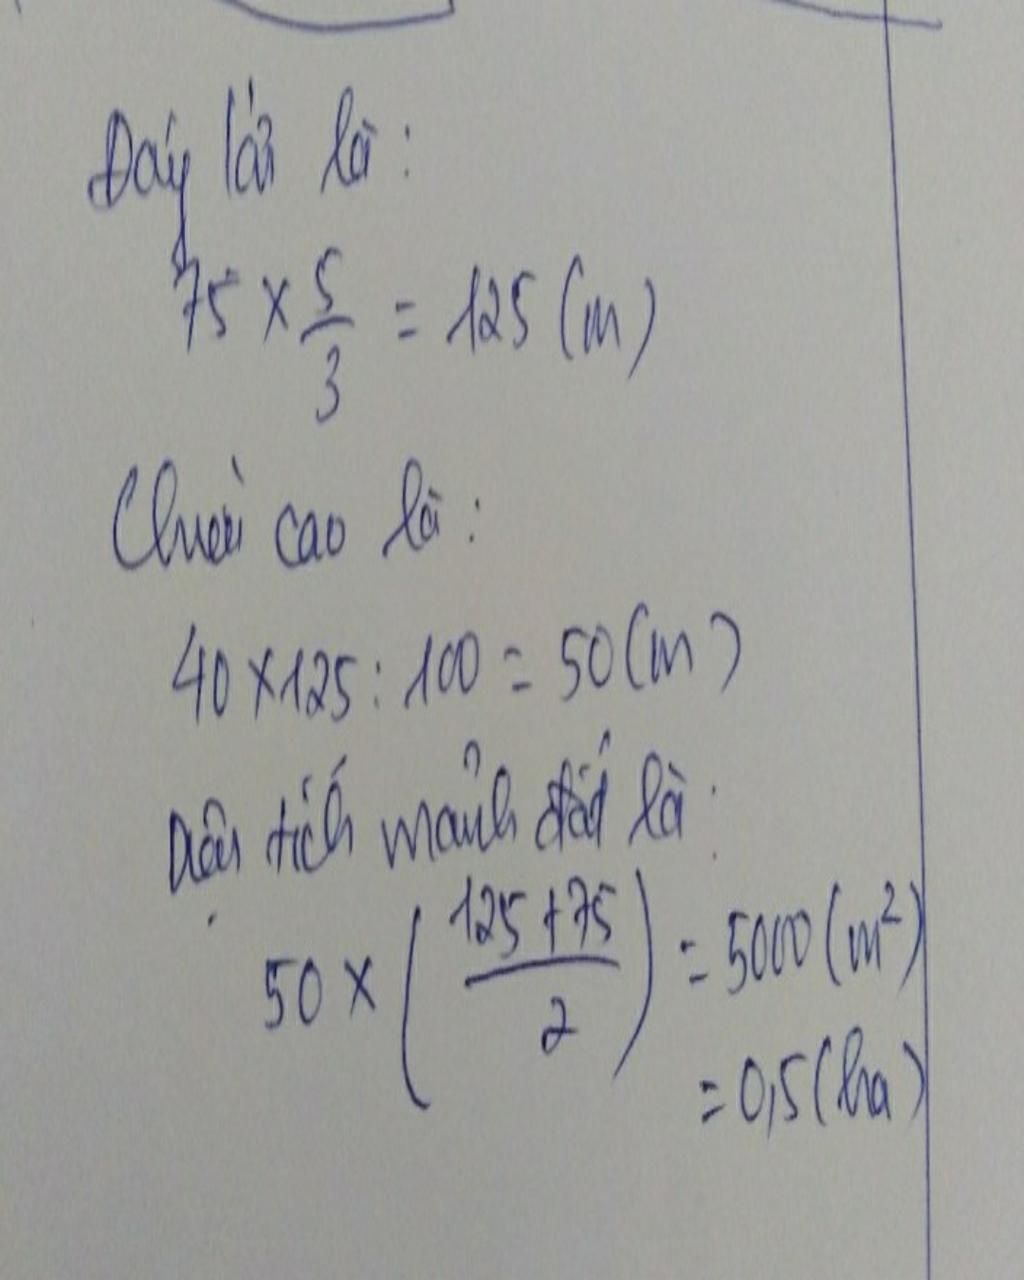 Đáy lớn là:
75 × 5/3 = 125 (m)
Chiều cao là:
40 × 125 : 100 = 50 (m)
Diện tích mảnh đất là:
50 × ( (125 + 75)/2 ) = 5000 (m²)
= 0,5 (ha)